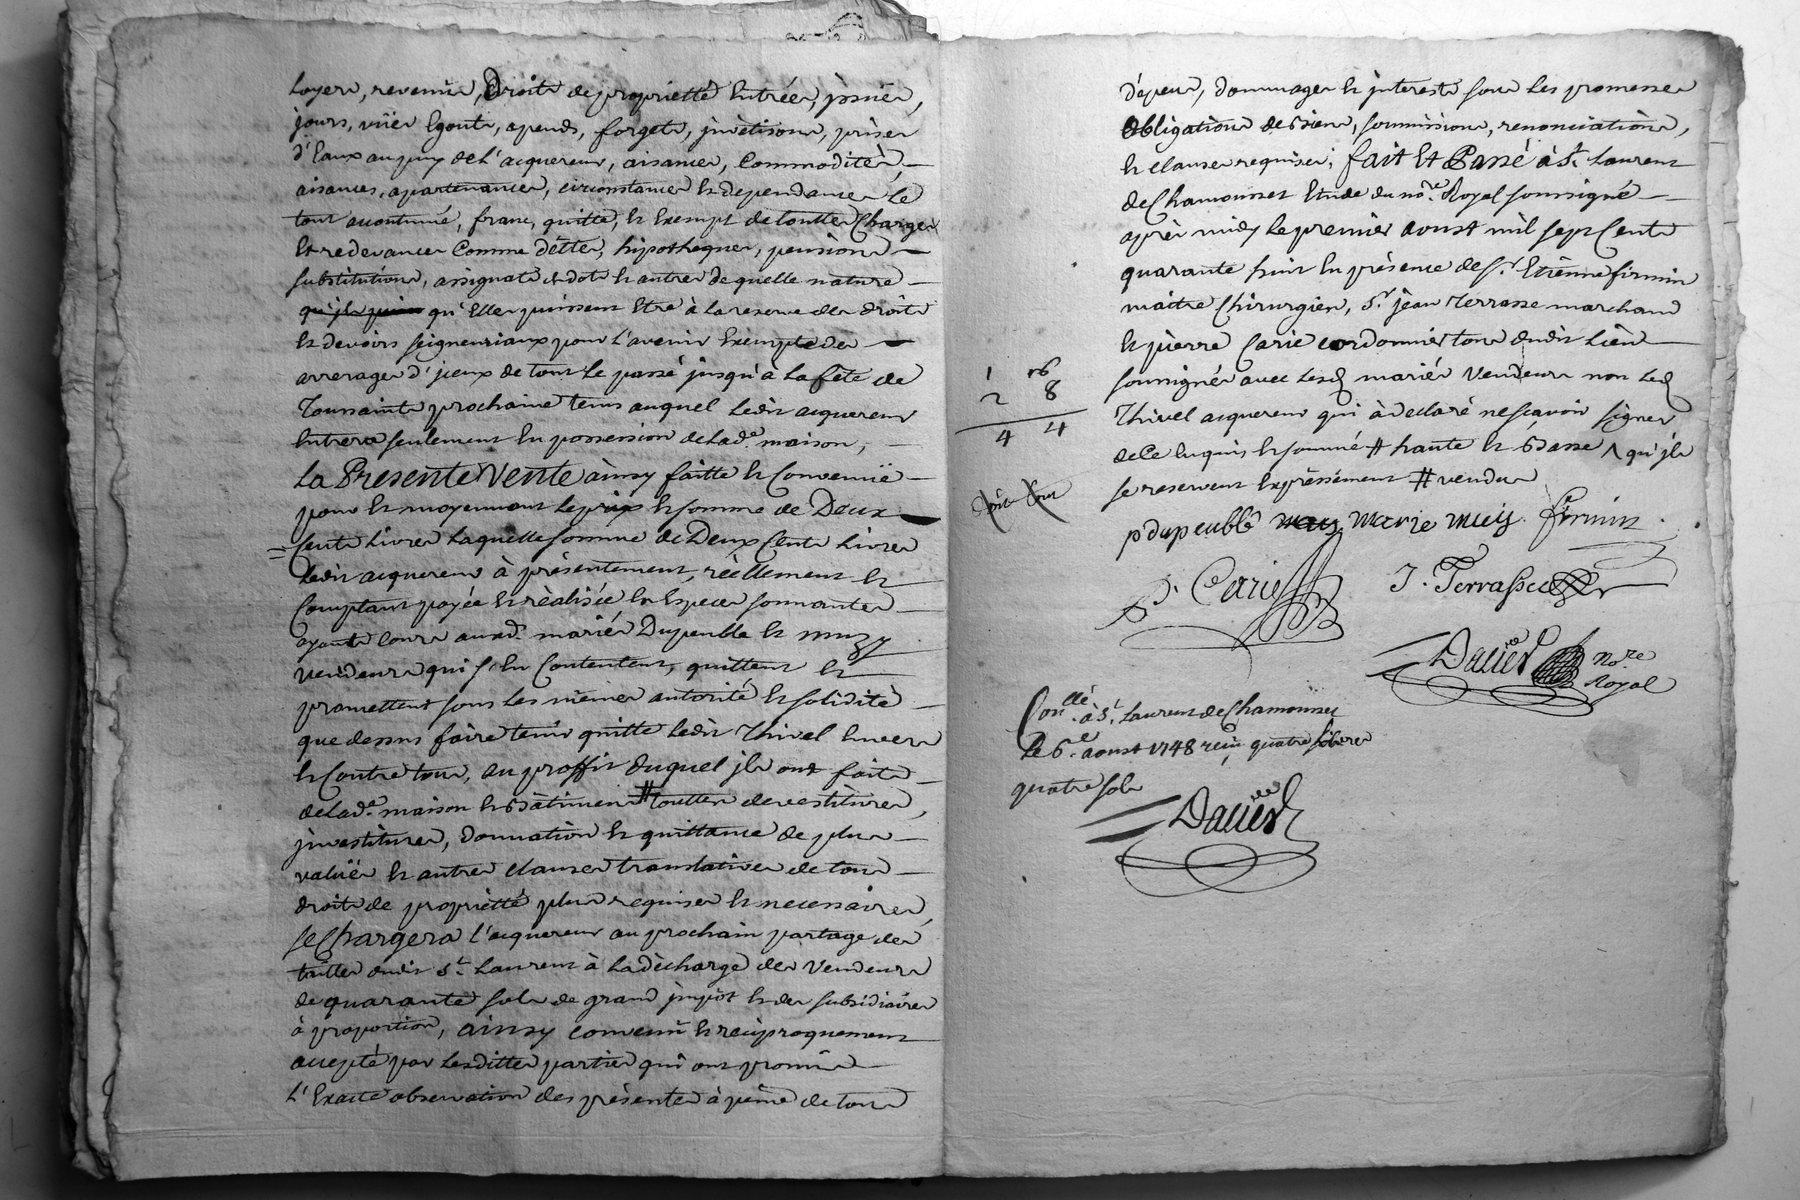 Loyers, revenus, Droits de proprietté Entrées, issües,
jours, vües Egouts, apends, forgets, invétisons, prises
d'Eaux au puy de L'acquereur, aisances, Commodités,
aisances, apartenances, circonstances et dependances Le
tout accoutumé, franc, quitte, et Exempt de touttes Charges
Et redevances Comme dettes, hipotheques, pensions
substitutions, assignats de dots et autres de quelle nature
qu'ils puiss qu'Elles puissent Etre à la reserve des droits
et devoirs seigneuriaux pour L'avenir Exempts des
arrerages d'iceux de tout Le passé jusqu'à La fête de
Toussaints prochaine tems auquel Ledit acquereur
Entrera seulement En possession de Lade. maison,
La Presente Vente ainsy faitte et Convenuë
pour et moyennant Le prix et somme de Deux
Cents Livres Laquelle somme de Deux Cents Livres
Ledit acquereur à présentement, réellement et
Comptant payée et réalisée En Especes sonnantes
ayants cours auxd. mariés Dupeuble et muzy
vendeurs qui s'En Contentent, quittent et
promettent sous Les mêmes autorité et solidité
que dessus faire tenir quitte Ledit Thivel Envers
et Contre tous, au proffit duquel ils ont faits
de Lade. maison et Bâtiment # touttes devestitures,
investitures, Donnation et quittance de plus
valüës et autres clauses translatives de tous
droits de proprietté plus requises et necessaires,
se Chargera l'acquereur au prochain partage des
tailles dudit St. Laurent à La décharge des Vendeurs
de quarante sols de grand impôt et des subsidiaires
à proportion, ainsy convenu et reciproquement
accepté par Lesdittes parties qui ont promis
L'Exacte observation des présentes à peine de tous
dépens, dommages et interests sous Les promesses
Obligations de Biens, soumissions, renonciations,
et clauses requises; fait Et Passé à St. Laurent
de Chamousset Etude du nore. Royal soussigné
après midy Le premier aoust mil sept Cents
quarante huit En présence de Sr. Etienne firmin
maitre Chirurgien, Sr. jean Terrasse marchand
et pierre Carié cordonnier tous dudit Lieu
soussignés avec Lesd mariés Vendeurs non Led
Thivel acquereur qui à declaré ne sçavoir signer
de Ce Enquis, et sommé # haute et Basse ^ qu'ils
se reservent Expréssement # vendus
1 16
2 8
4 4
pdupeublé Marie muzy firmin
P. Carié J. Terrasse
Daüer Nore.
Royal
Conllé. à St. Laurent de Chamousset
Le 6e. aoust 1748 reçu quatre Livres
quatre sols
Daüer